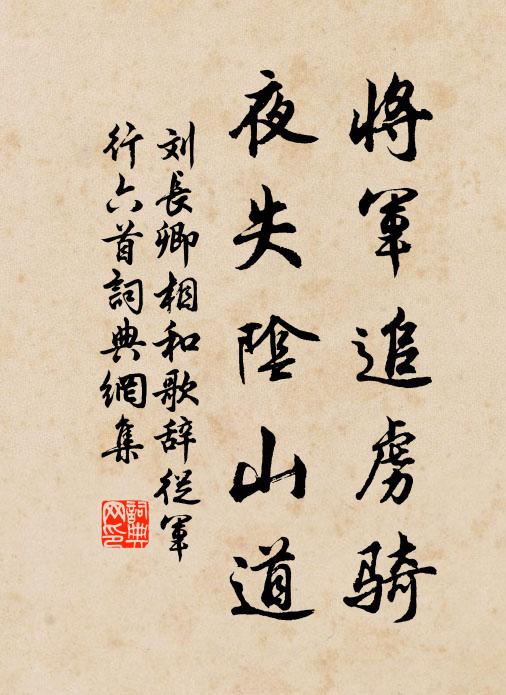 將軍追虜骑
夜失陰山道
刘長卿相和歌辞從軍
行六首詞典網集
詞典
网印